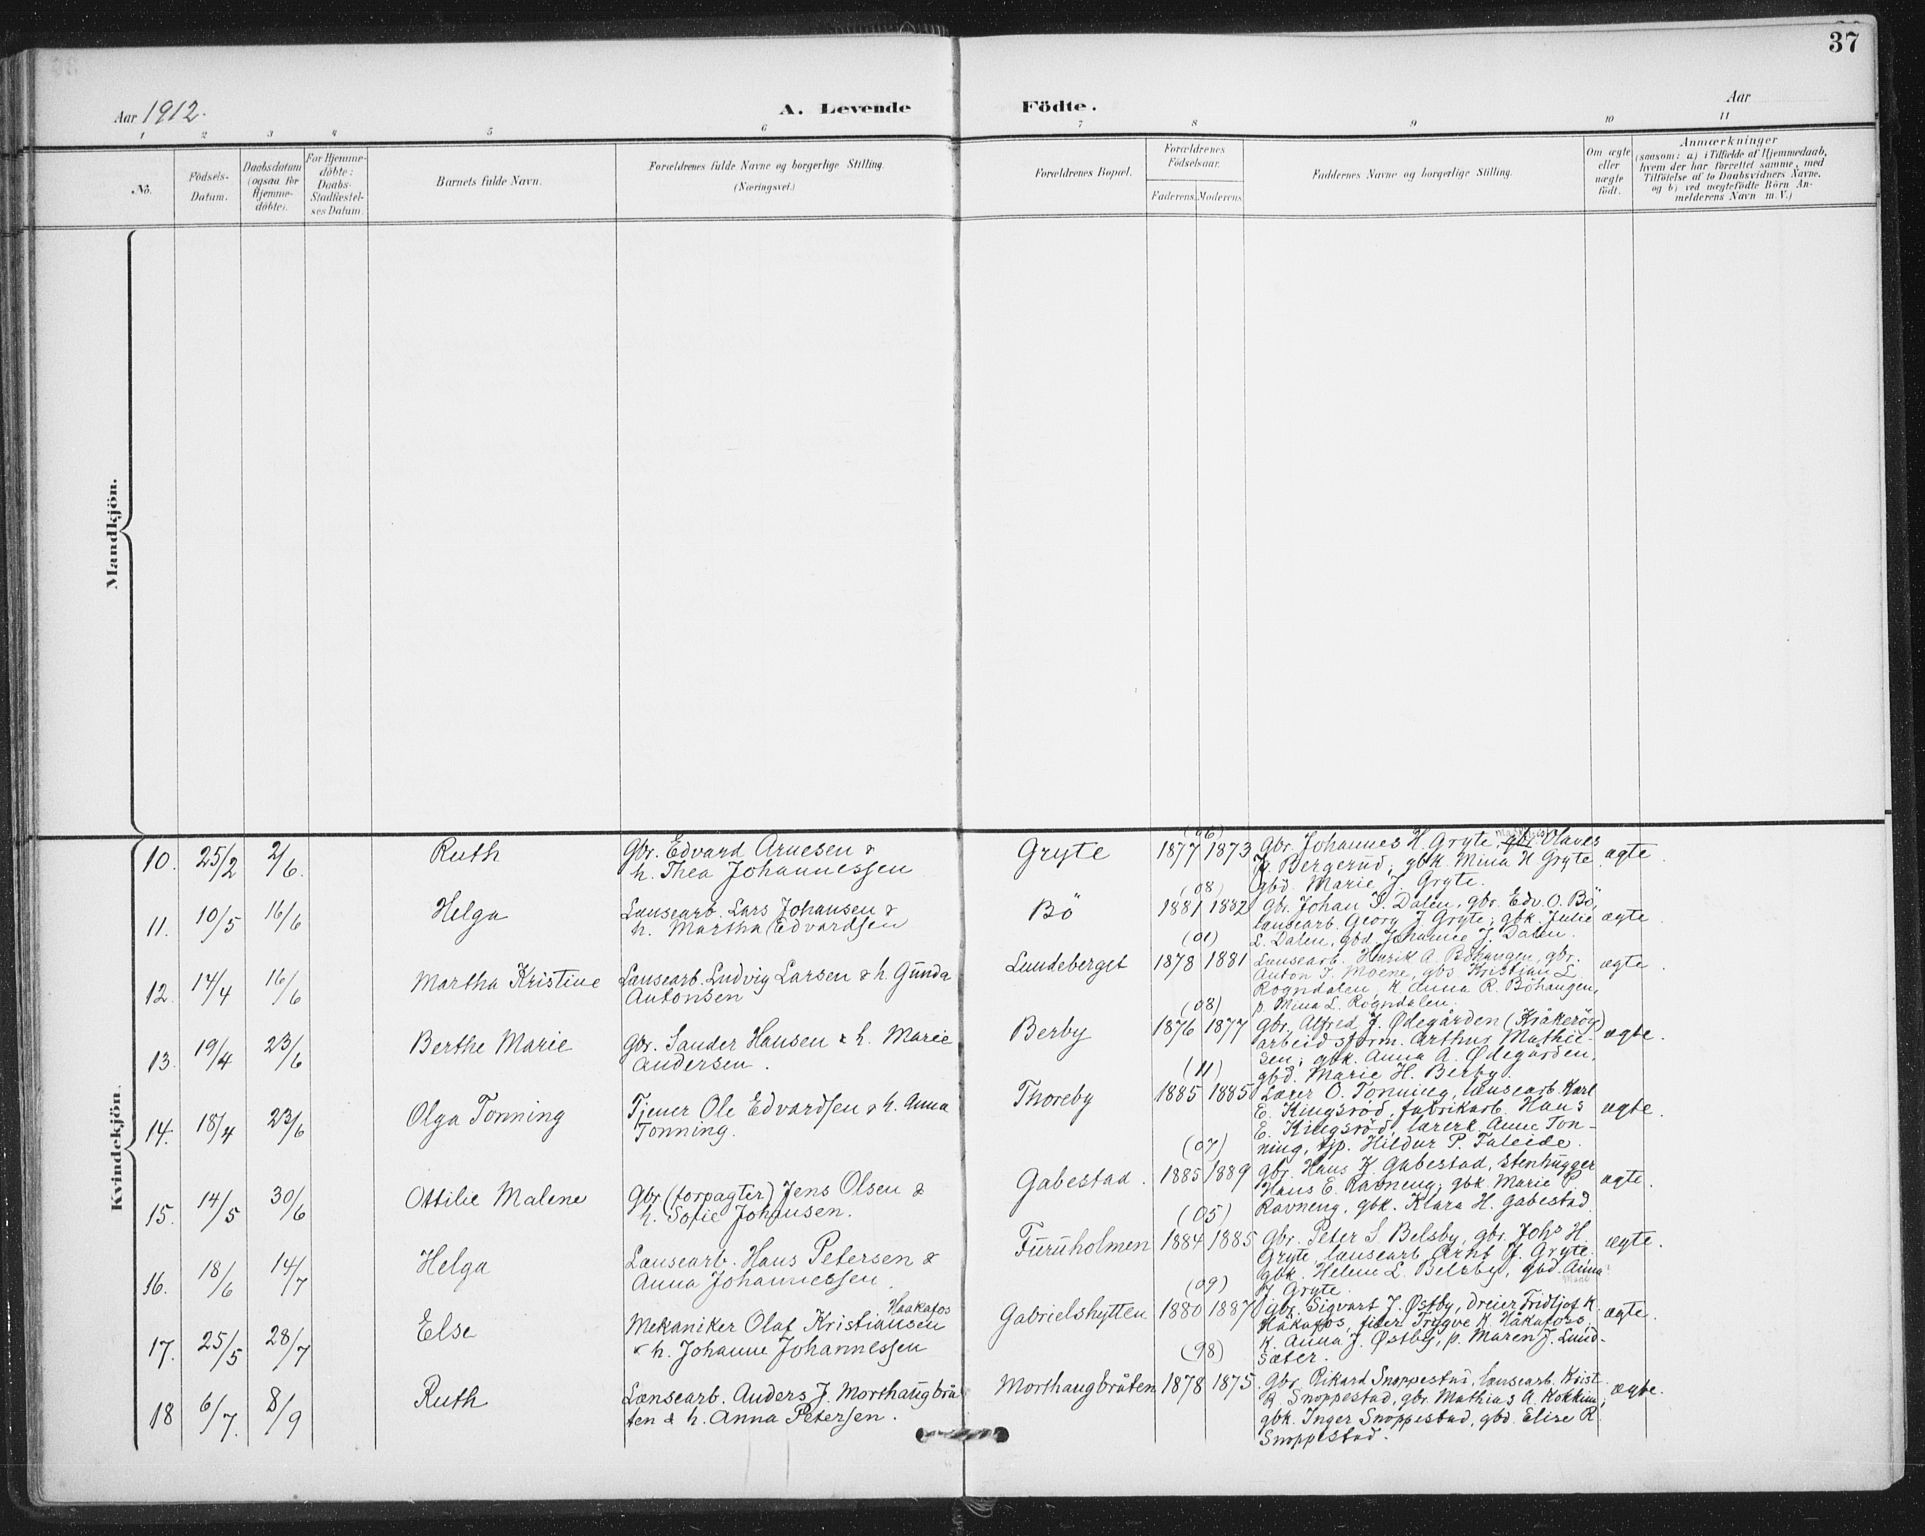 37
Aar 1912.
A. Levende Födte.
Aar
1 2 3 4 5 6 7 8 9 10 11
No.
Födsels-Datum.
Daabsdatum (ogsaa for Hjemme-döbte).
For Hjemme-döbte: Daabs-Stadfæstel-ses Datum.
Barnets fulde Navn.
Forældrenes fulde Navne og borgerlige Stilling.
(Næringsvei.)
Forældrenes Bopæl.
Forældrenes Födselsaar.
Faderens. Moderens.
Faddernes Navne og borgerlige Stilling.
Om ægte eller uægte födt.
Anmærkninger
(saasom: a) i Tilfælde af Hjemmedaab,
hvem der har forrettet samme, med
Tilföielse af to Daabsvidners Navne.
og b) ved uægtefödte Börn An-
melderens Navn m.V.)
Mandkjön.
Kvindekjön.
10. 25/2 2/6. Ruth
Gbr. Edvard Arnesen &
h. Thea Johannessen
Gryte
(06)
1877 1873
Gbr. Johannes H. Gryte, gbr. Olaves
J. Bergerud, gbk. Mina H Gryte
gbd. Marie J. Gryte.
ægte.
11. 10/5 16/6 Helga
Lensearb. Lars Johansen &
h. Martha Edvardsen
Bö
(08)
1881 1882
Gbr. Johan S. Dalen, gbr. Edv. O. Bö,
lensearb. Georg J Gryte; gbk. Julie
L. Dalen, gbd. Johanne J. Dalen.
ægte.
12. 14/4 16/6 Martha Kristine
Lensearb. Ludvig Larsen & h. Gunda
Antonsen
Lundeberget
(01)
1878 1881
Lensearb. Henrik A. Böhaugen, gbr.
Anton T. Moene, gbs. Kristian L.
Rogndalen, k. Anna R. Böhaugen,
p. Mina L. Rogndalen.
ægte.
13. 19/4 23/6 Berthe Marie
Gbr. Sander Hansen & h. Marie
Andersen.
Berby
(03)
1876 1877
gbr. Alfred J. Ødegården (Kråkerøy)
arbeidsform. Arthur Mathie-
sen; gbk. Anna A. Ødegården,
gbd. Marie H. Berby.
ægte.
14. 18/4 23/6 Olga Tonning
Tjener Ole Edvardsen & h. Anna
Tonning.
Thoreby
(11)
1885 1885
Lærer O. Tonning, lensearb. Karl
E. Kingsröd, fabrikarb. Hans
E. Kingsröd, lærerk. Anne Ton-
ning, tjp. Hildur P. Faleide.
ægte.
15. 14/5 30/6 Ottilie Malene
Gbr. (forpagter) Jens Olsen &
h. Sofie Johansen.
Gabestad.
(07)
1885 1889
gbr. Hans K. Gabestad, stenhugger
Hans E. Ravneng; gbk. Marie P.
Ravneng, gbk. Klara H. Gabestad
ægte.
16. 18/6 14/7 Helga
Lensearb. Hans Petersen &
Anna Johannessen.
Furuholmen
(05)
1884 1885
Gbr. Peter S. Belsby, gbr. Johs H.
Gryte, lensearb. Arnt J. Gryte.
gbk. Helene L. Belsby, gbd. Anna
J Gryte.
ægte.
17. 25/5 28/7 Else
Haakafos
Mekaniker Olaf Kristiansen
& h. Johanne Johannessen
Gabrielshytten
(09)
1880 1887
gbr. Sigvart J. Østby, dreier Fridtjof K.
Håkafos, filer Trygve K. Håkafoss,
k. Anna J. Østby, p. Maren J. Lund-
sæter.
ægte.
18 6/7. 8/9 Ruth
Lensearb. Anders J. Morthaugbrå-
ten & h. Anna Petersen.
Morthaugbråten
(98)
1878 1875
Gbr. Rikard Snoppestad, lensearb. Krist.
R. Snoppestad, gbr. Mathias A. Kokkim,
gbk. Inger Snoppestad, gbd. Elise R
Snoppestad.
ægte.